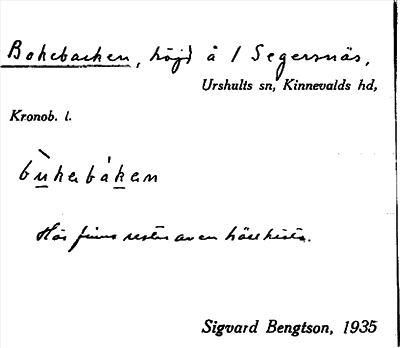 Bokebacken, höjd å 1 Segersnäs,
Urshults sn, Kinnevalds hd,
Kronob. l.
bùkebákan
Här finns rester av en
Sigvard Bengtson, 1935